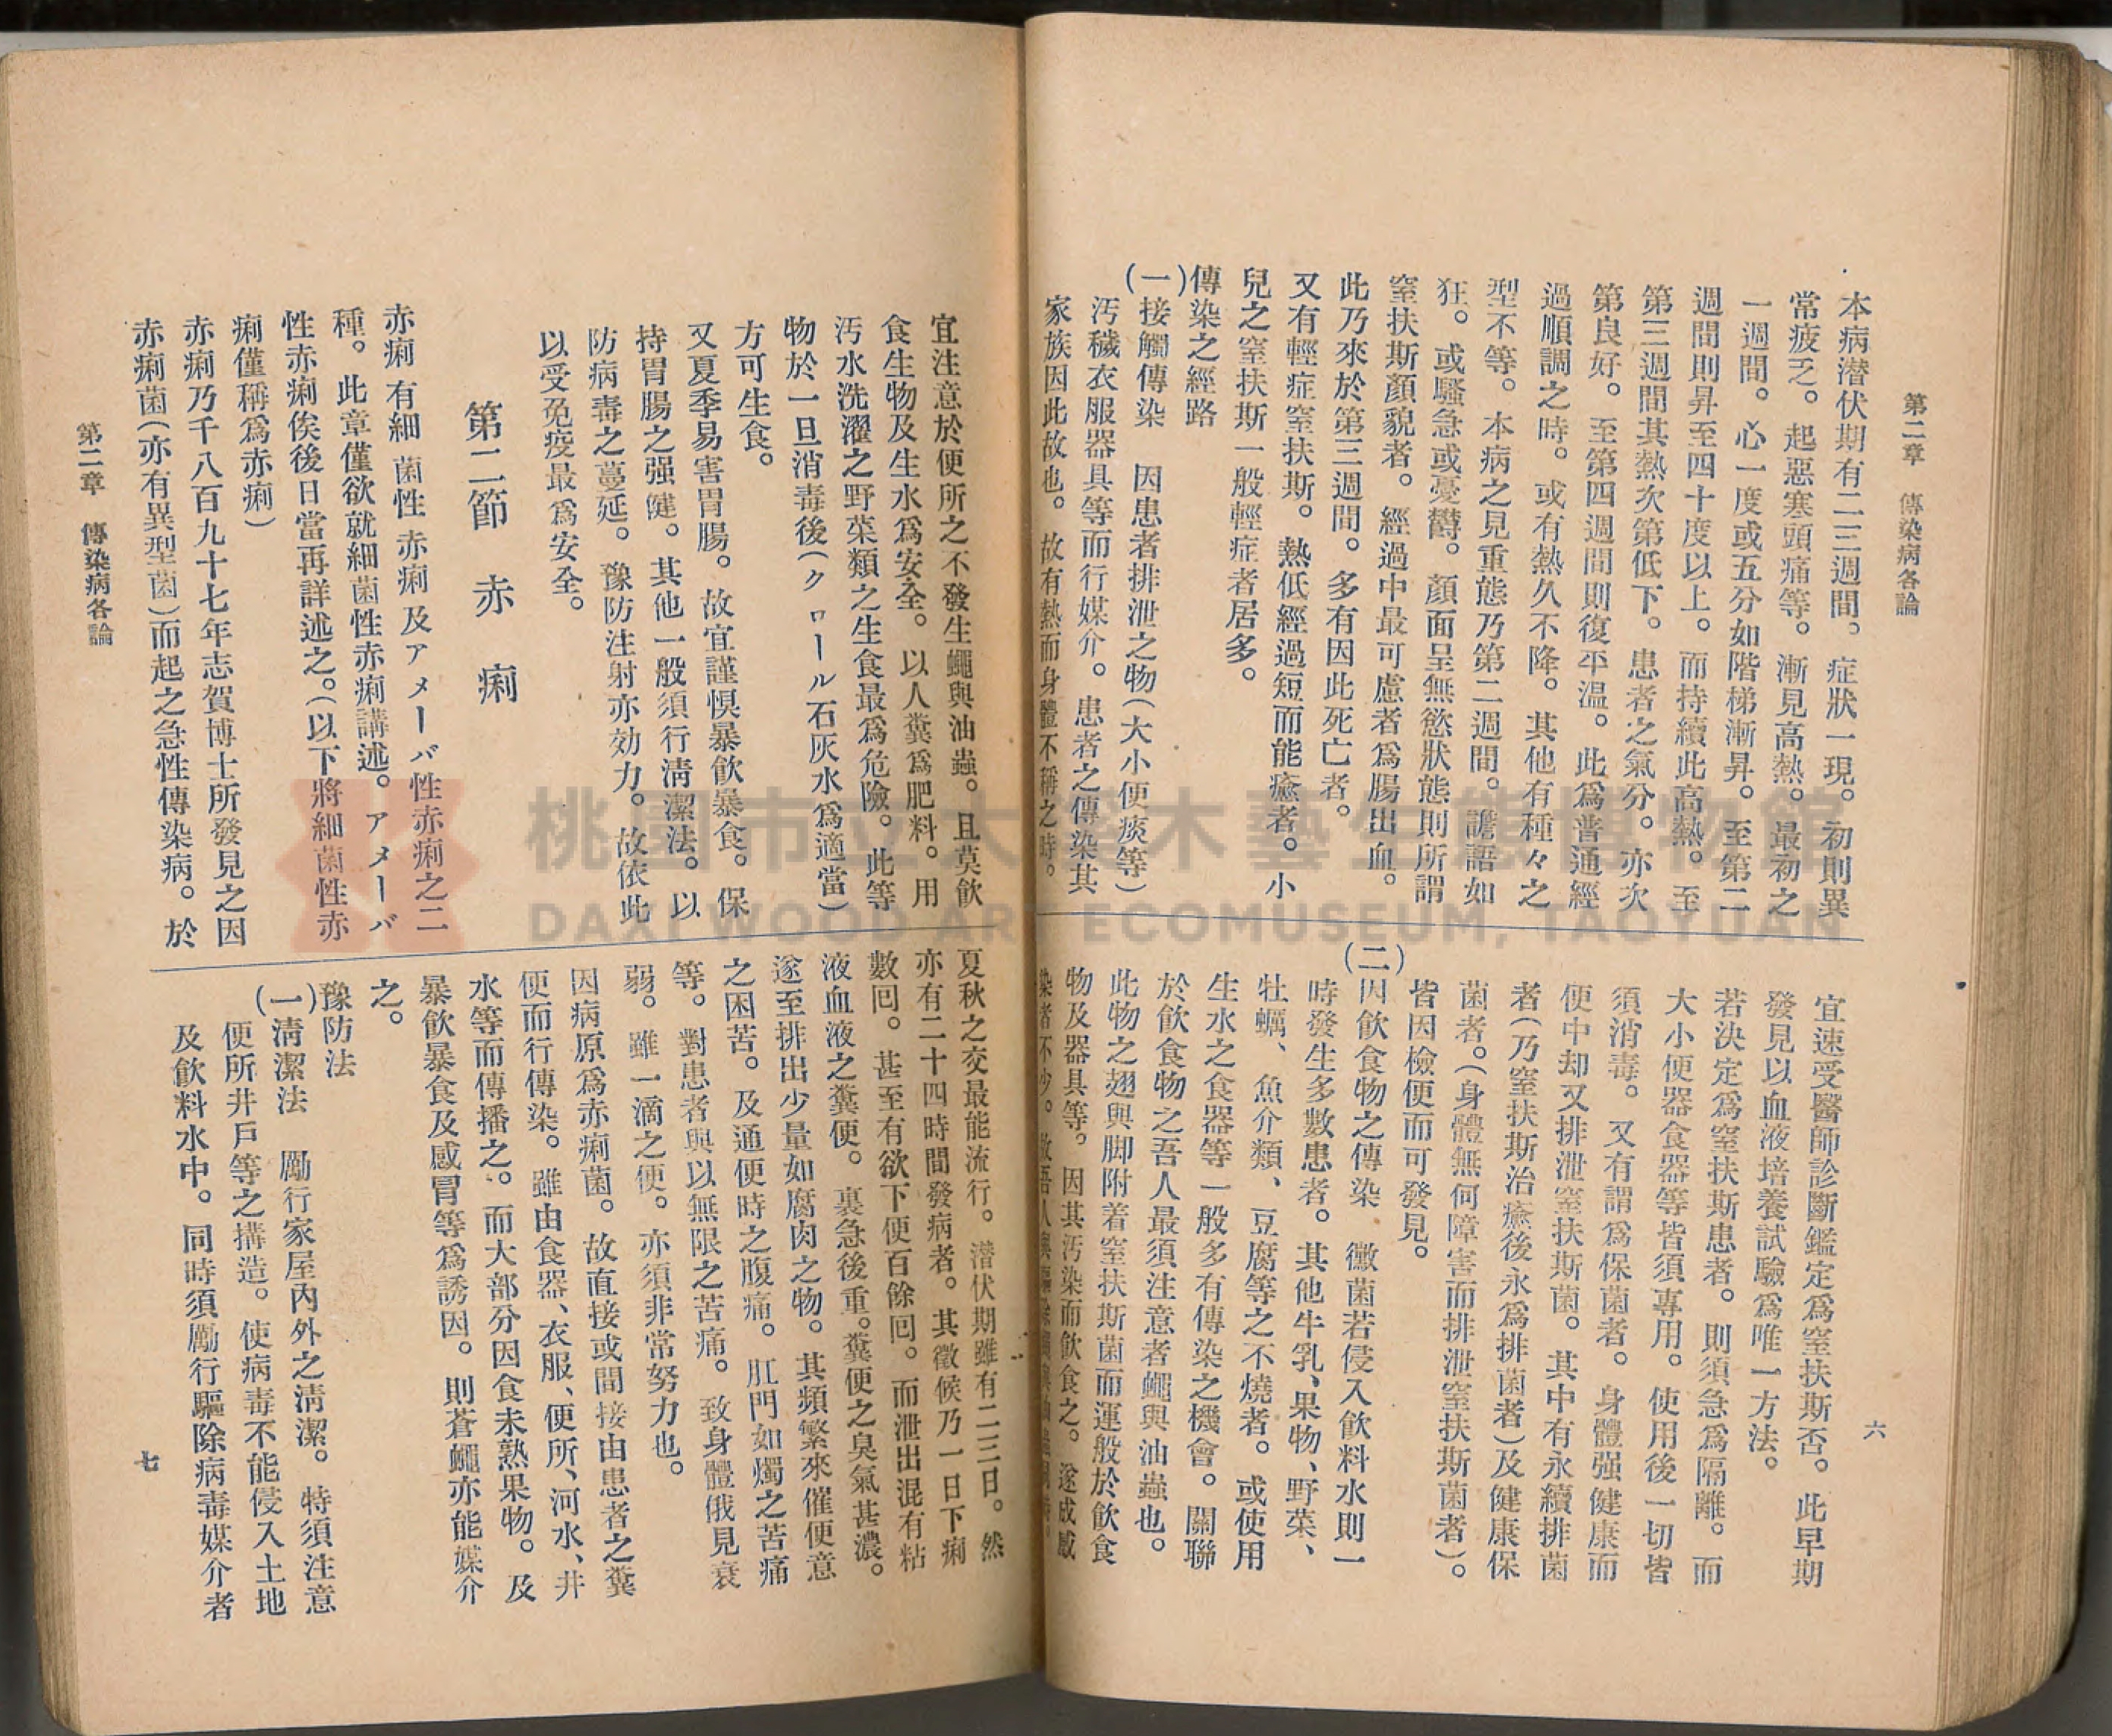 第二章　傳染病各論
六
本病潜伏期有二三週間。症狀一現。初則異
常疲乏。起惡寒頭痛等。漸見高熱。最初之
一週間。心一度或五分如階梯漸昇。至第二
週間則昇至四十度以上。而持續此高熱。至
第三週間其熱次第低下。患者之氣分。亦次
第良好。至第四週間則復平溫。此爲普通經
過順調之時。或有熱久不降。其他有種々之
型不等。本病之見重態乃第二週間。譫語如
狂。或騷急或憂欝。顏面呈無慾狀態則所謂
窒扶斯顏貌者。經過中最可慮者爲腸出血。
此乃來於第三週間。多有因此死亡者。
又有輕症窒扶斯。熱低經過短而能癒者。小
兒之窒扶斯一般輕症者居多。
傳染之經路
(一)接觸傳染　因患者排泄之物(大小便痰等)
汚穢衣服器具等而行媒介。患者之傳染其
家族因此故也。故有熱而身體不稱之時。
宜速受醫師診斷鑑定爲窒扶斯否。此早期
發見以血液培養試驗爲唯一方法。
若決定爲窒扶斯患者。則須急爲隔離。而
大小便器食器等皆須專用。使用後一切皆
須消毒。又有謂爲保菌者。身體强健康而
便中却又排泄窒扶斯菌。其中有永續排菌
者(乃窒扶斯治癒後永爲排菌者)及健康保
菌者。(身體無何障害而排泄窒扶斯菌者)。
皆因檢便而可發見。
(二)因飲食物之傳染　黴菌若侵入飲料水則一
時發生多數患者。其他牛乳、果物、野菜、
牡蠣、魚介類、豆腐等之不燒者。或使用
生水之食器等一般多有傳染之機會。關聯
於飲食物之吾人最須注意者蠅與油蟲也。
此物之翅與脚附着窒扶斯菌而運般於飲食
物及器具等。因其汚染而飲食之。遂成感
染者不少。故吾人
宜注意於便所之不發生蠅與油蟲。且莫飲
食生物及生水爲安全。以人糞爲肥料。用
汚水洗濯之野菜類之生食最爲危險。此等
物於一旦消毒後(クロール石灰水爲適當)
方可生食。
又夏季易害胃腸。故宜謹愼暴飲暴食。保
持胃腸之强健。其他一般須行淸潔法。以
防病毒之蔓延。豫防注射亦効力。故依此
以受免疫最爲安全。
第二節　赤痢
赤痢有細菌性赤痢及アメーバ性赤痢之二
種。此章僅欲就細菌性赤痢講述。アメーバ
性赤痢俟後日當再詳述之。(以下將細菌性赤
痢僅稱爲赤痢)
赤痢乃千八百九十七年志賀博士所發見之因
赤痢菌(亦有異型菌)而起之急性傳染病。於
夏秋之交最能流行。潜伏期雖有二三日。然
亦有二十四時間發病者。其徵候乃一日下痢
數囘。甚至有欲下便百餘囘。而泄出混有粘
液血液之糞便。裏急後重。糞便之臭氣甚濃。
遂至排出少量如腐肉之物。其頻繁來催便意
之困苦。及通便時之腹痛。肛門如燭之苦痛
等。對患者與以無限之苦痛。致身體俄見衰
弱。雖一滴之便。亦須非常努力也。
因病原爲赤痢菌。故直接或間接由患者之糞
便而行傳染。雖由食器、衣服、便所、河水、井
水等而傳播之。而大部分因食未熟果物。及
暴飲暴食及感冒等爲誘因。則蒼蠅亦能媒介
之。
豫防法
(一)淸潔法　勵行家屋內外之淸潔。特須注意
便所井戶等之搆造。使病毒不能侵入土地
及飲料水中。同時須勵行驅除病毒媒介者
第二章　傳染病各論
七
桃園市立大溪木藝生態博物館
DAXI WOOD ART ECOMUSEUM, TAOYUAN